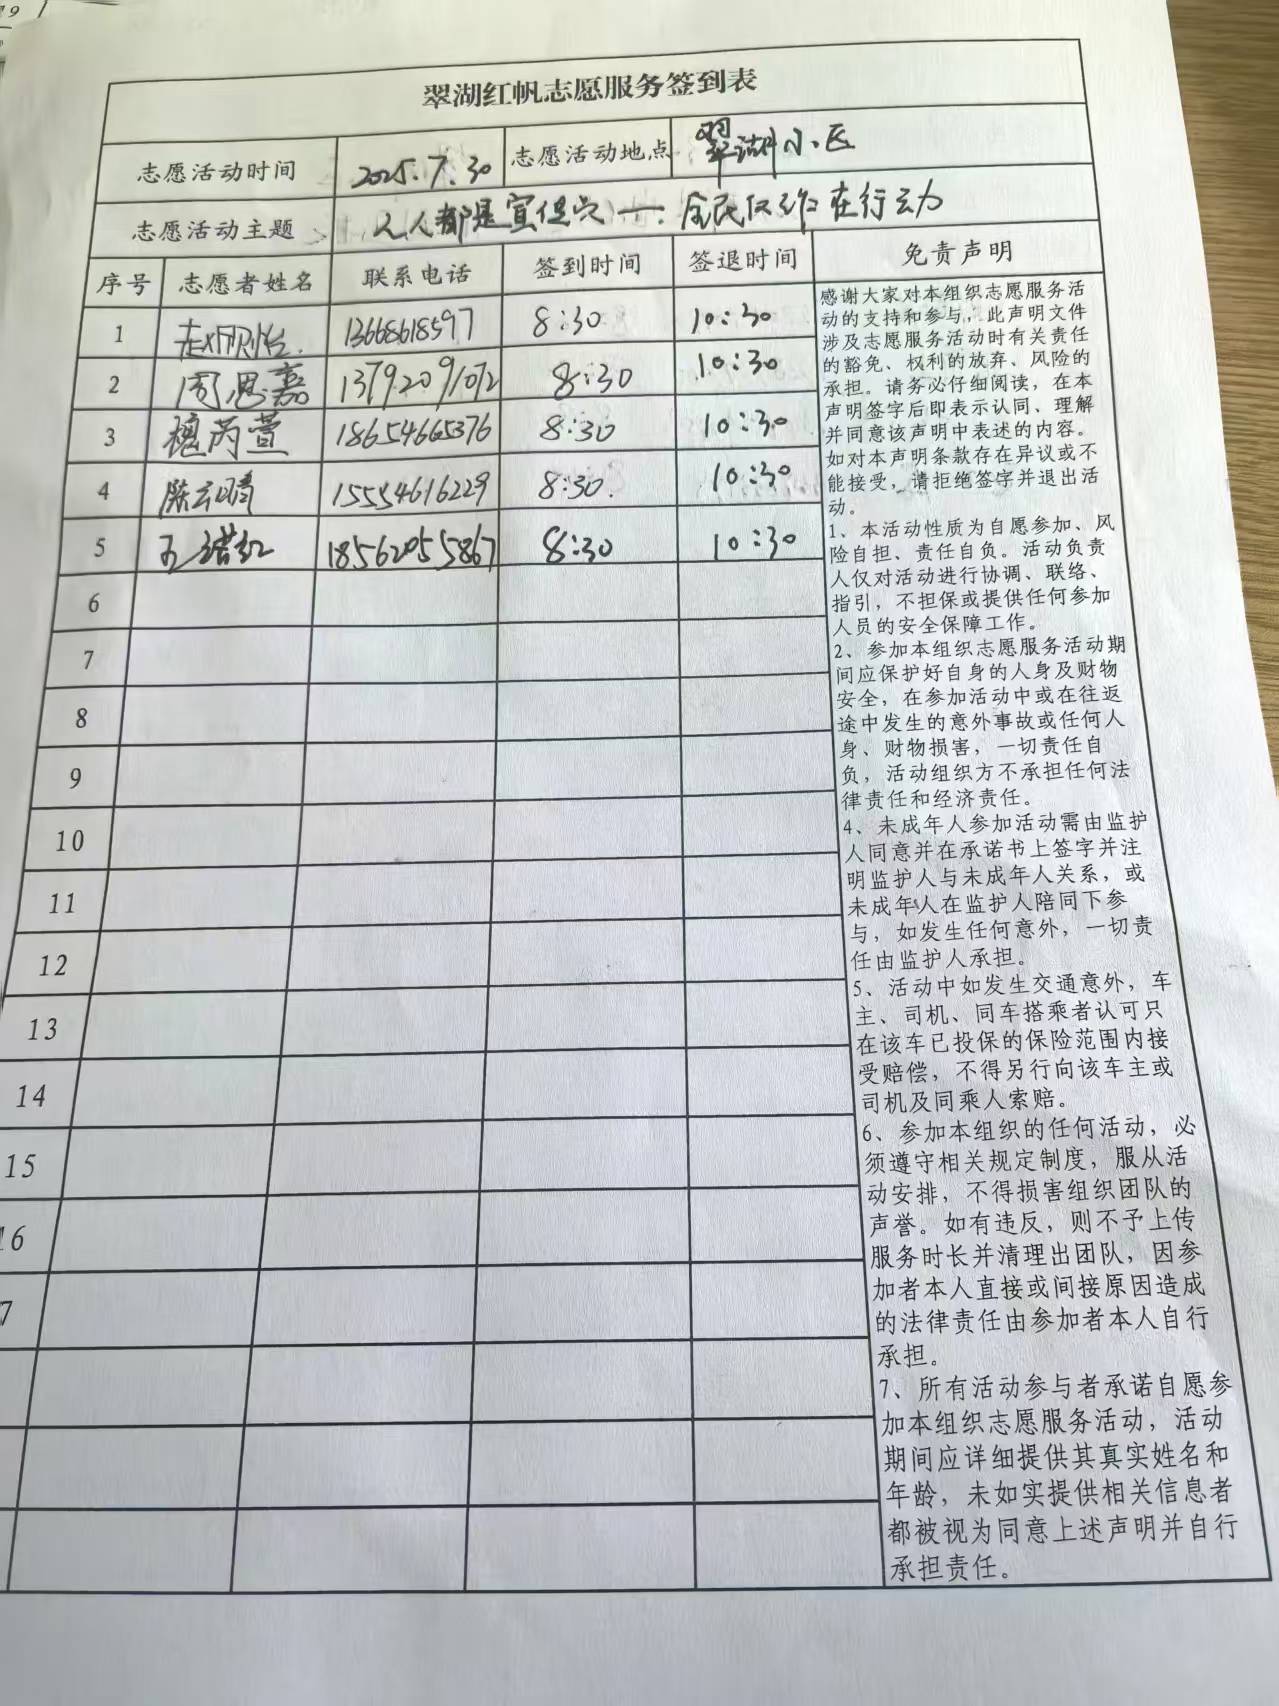 翠湖红帆志愿服务签到表
志愿活动时间 2025.7.30 志愿活动地点 翠湖小区
志愿活动主题 人人都是宣传 全民 在行动
序号 志愿者姓名 联系电话 签到时间 签退时间 免责声明
1 13668618597 8:30 10:30
2 周思嘉 13792091072 8:30 10:30
3 穆芮萱 18654665376 8:30 10:30
4 陈 晴 15554616229 8:30. 10:30
5 18562055867 8:30 10:30
6
7
8
9
10
11
12
13
14
15
16
7
感谢大家对本组织志愿服务活
动的支持和参与,此声明文件
涉及志愿服务活动时有关责任
的豁免、权利的放弃、风险的
承担。请务必仔细阅读,在本
声明签字后即表示认同、理解
并同意该声明中表述的内容。
如对本声明条款存在异议或不
能接受,请拒绝签字并退出活
动。
1、本活动性质为自愿参加、风
险自担、责任自负。活动负责
人仅对活动进行协调、联络、
指引,不担保或提供任何参加
人员的安全保障工作。
2、参加本组织志愿服务活动期
间应保护好自身的人身及财物
安全,在参加活动中或在往返
途中发生的意外事故或任何人
身、财物损害,一切责任自
负,活动组织方不承担任何法
律责任和经济责任。
4、未成年人参加活动需由监护
人同意并在承诺书上签字并注
明监护人与未成年人关系,或
未成年人在监护人陪同下参
与,如发生任何意外,一切责
任由监护人承担。
5、活动中如发生交通意外,车
主、司机、同车搭乘者认可只
在该车已投保的保险范围内接
受赔偿,不得另行向该车主或
司机及同乘人索赔。
6、参加本组织的任何活动,必
须遵守相关规定制度,服从活
动安排,不得损害组织团队的
声誉。如有违反,则不予上传
服务时长并清理出团队,因参
加者本人直接或间接原因造成
的法律责任由参加者本人自行
承担。
7、所有活动参与者承诺自愿参
加本组织志愿服务活动,活动
期间应详细提供其真实姓名和
年龄,未如实提供相关信息者
都被视为同意上述声明并自行
承担责任。